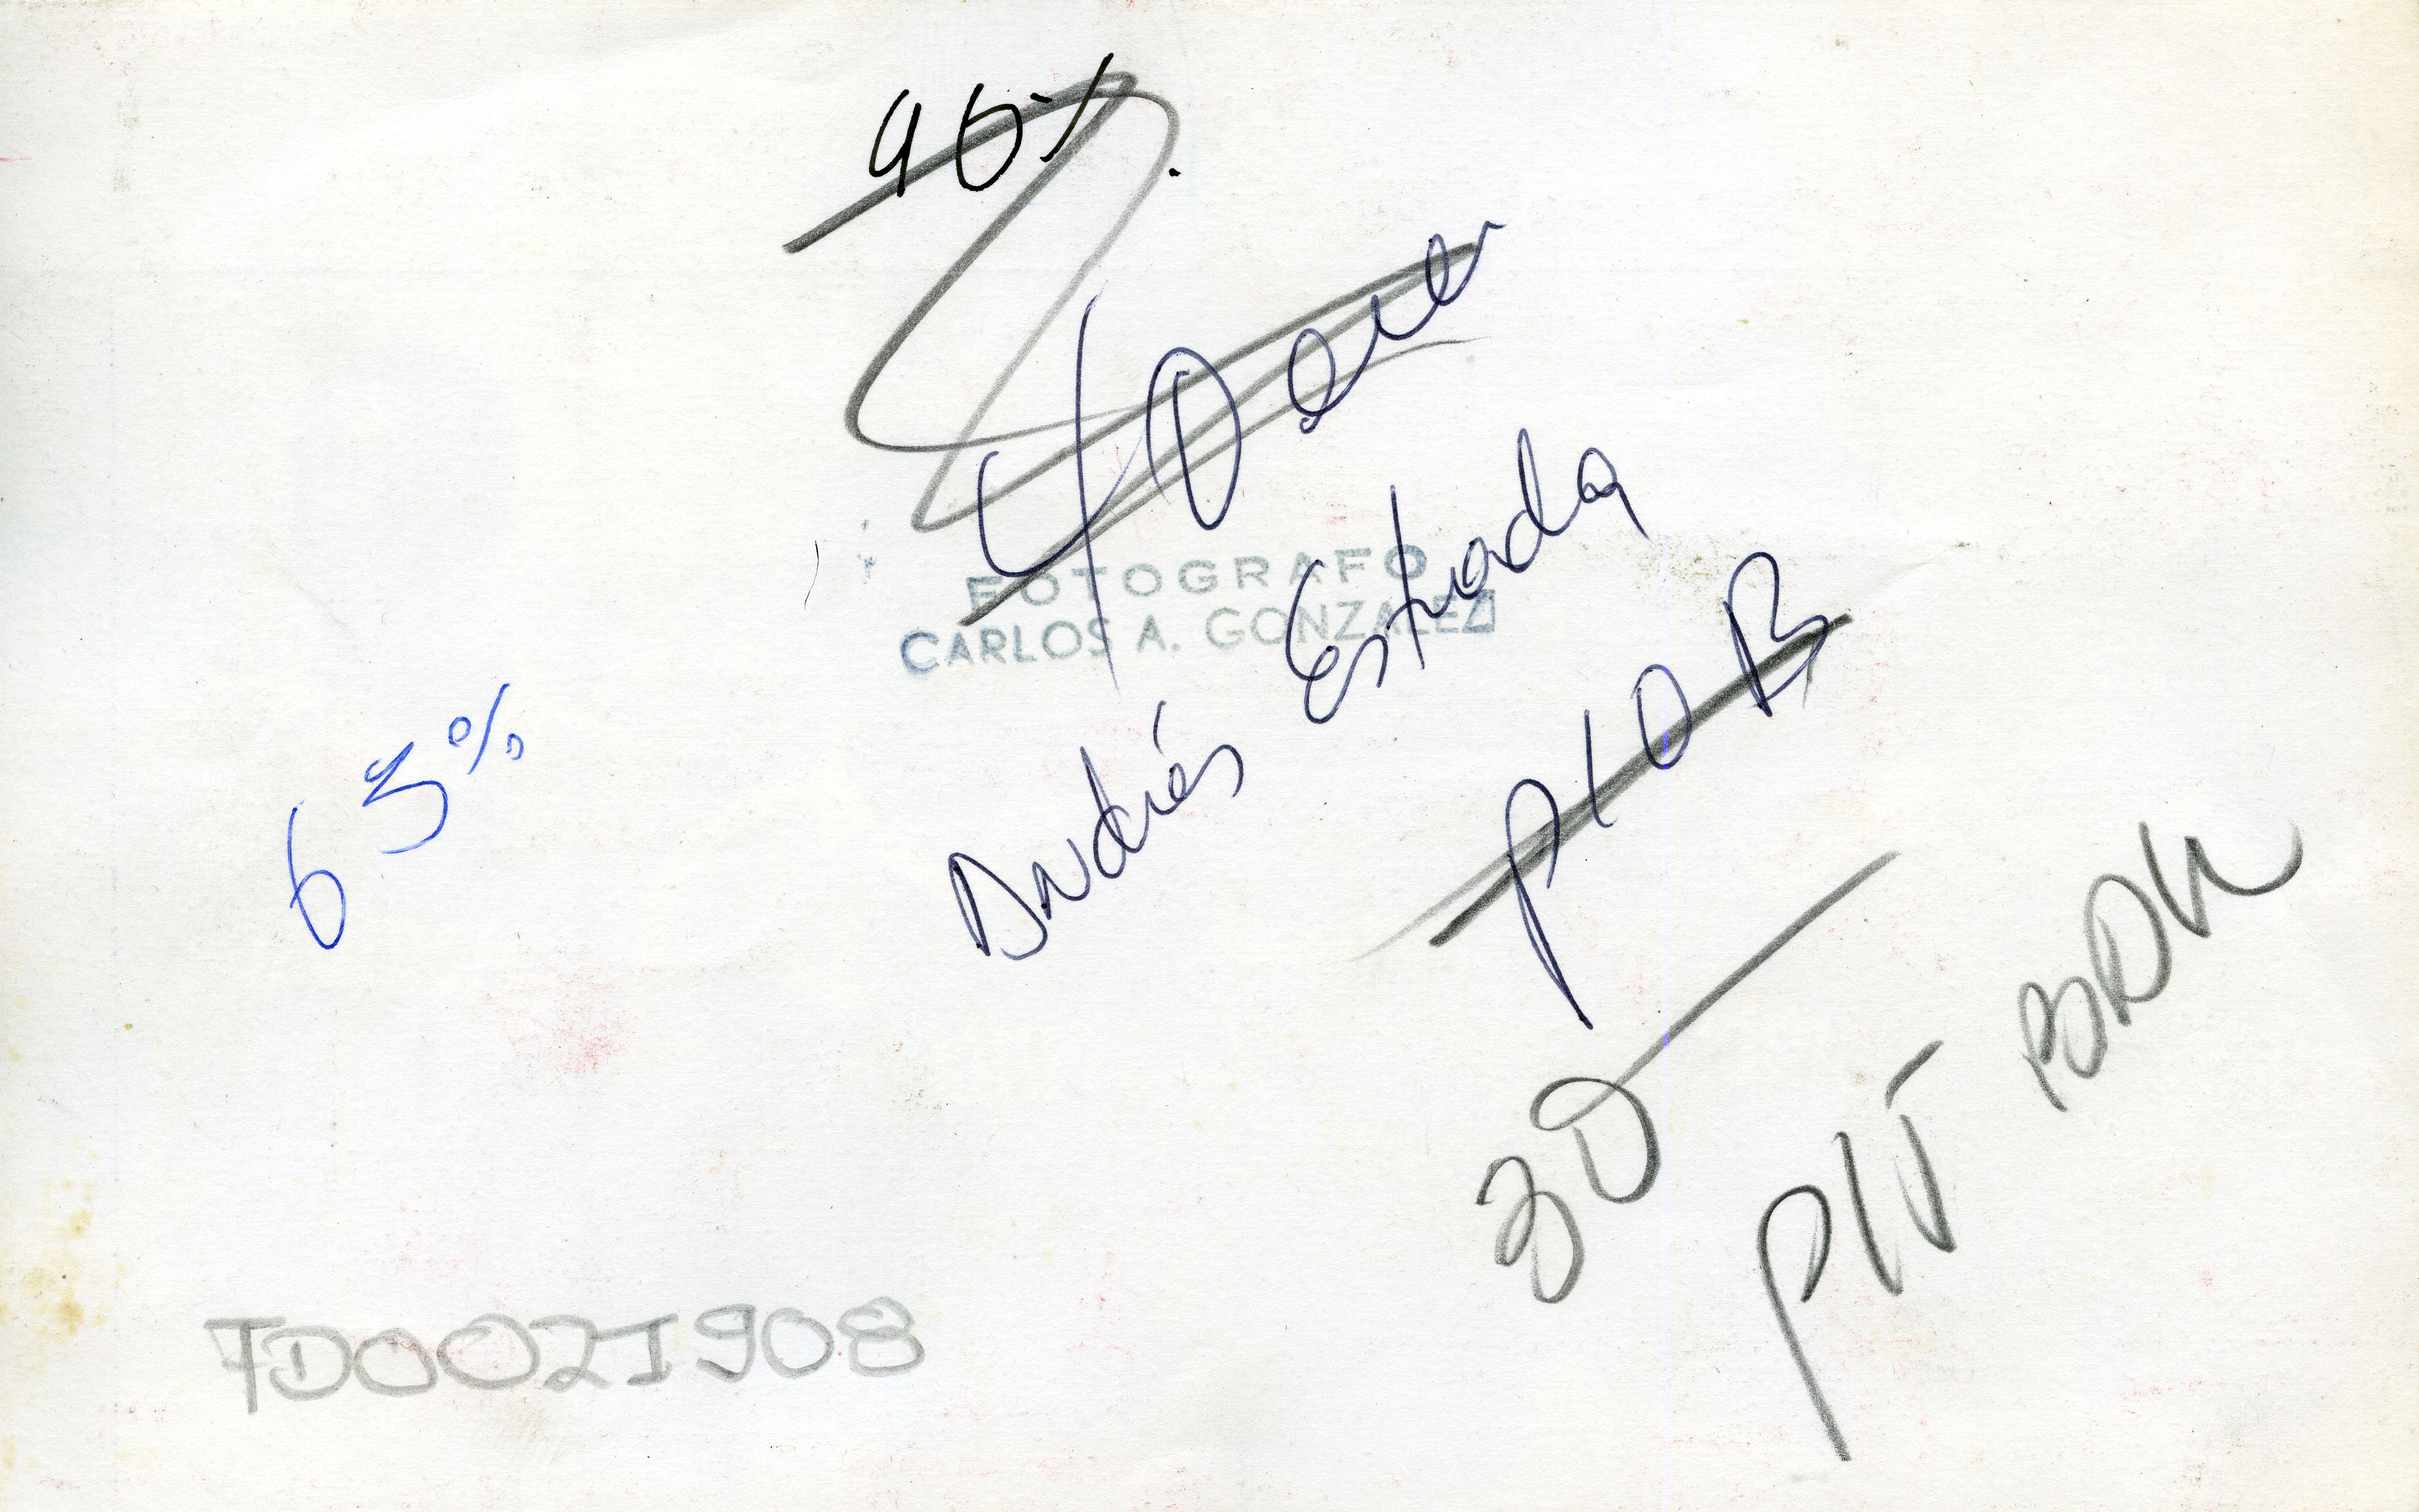 90%
4 Dem
FOTOGRAFO
CARLOS A. GONZALEZ
Andrés Estrada
P10B
63%
30
PIT BDW
7D0021908